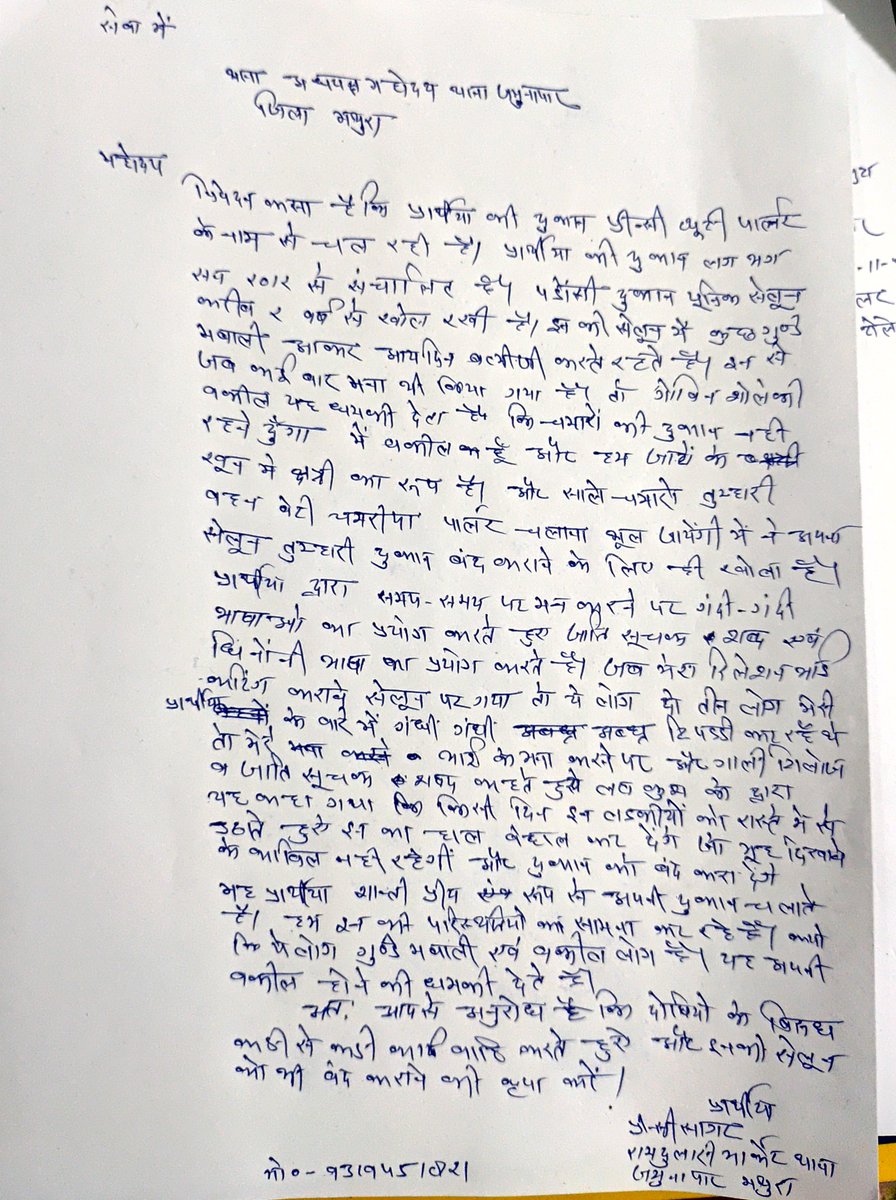 सेवा में
थाना अध्यक्ष महोदय थाना जमुनापार
जिला मथुरा
महोदय
निवेदन करना है कि प्रार्थीया की दुकान प्रीन्सी ब्यूटी पार्लर
के नाम से चल रही है। प्रार्थीया की दुकान लग भग
सन 2012 से संचालित है। पडोसी दुकान यूनिक सेलून
करीब 2 वर्ष से खोल रखी है। इन की सेलून में कुछ गुन्डे
मवाली आकर आयदिन बत्मीजी करते रहते है। इन से
जब कई बार मना भी किया गया है। तो शोलंकी
वकील यह धमकी देता है कि चमारों की दुकान नही
रहने दूँगा में वकील हूँ और हम जाटों के
खून मे क्षत्री का रूप है। और साले चमारो तुम्हारी
बहन बेटी चमरीया पार्लर चलाना भूल जायेंगी में ने अपना
सेलून तुम्हारी दुकान बंद कराने के लिए ही खोला है।
प्रार्थीया द्वारा समय-समय पर मना करने पर गंदी-गंदी
भाषाओ का प्रयोग करते हुए जाति सूचक शब्द एवं
घिनोंनी भाषा का प्रयोग करते है। जब मेरा रिलेशन भाई
कटिंग कराने सेलून पर गया तो ये लोग दो तीन लोग मेरी
प्रार्थीया के बारे में गंधी गंधी टिपडडी कर रहे थे
तो मेरे भाई के मना करने पर और गाली गिलोज
व जाति सूचक शब्द कहते हुये लव कुश के द्वारा
यह कहा गया कि किसी दिन इन लडकीयों को रास्ते में से
उठाते हुऐ इन का हाल बेहाल कर देंगे जो मूह दिखाने
के काबिल नही रहेगीं और दुकान को बंद करा देंगे
यह प्रार्थीया शान्ती प्रीय रूप से अपनी दुकान चलाते
है। हम इन की परिस्थतियो का सामना कर रहे है। क्यो
कि ये लोग गुन्डे मवाली एवं वकील लोग है। यह अपनी
वकील होने की धमकी देते है।
अतः आपसे अनुरोध है कि दोषियो के बिरुध
कडी से कडी कार्य वाहि करते हुऐ और इनकी सेलून
को भी बंद कराने की कृपा करें।
प्रार्थीया
प्रीन्सी सागर
रामदुलारी मार्केट थाना
जमुना पार मथुरा
मो०-